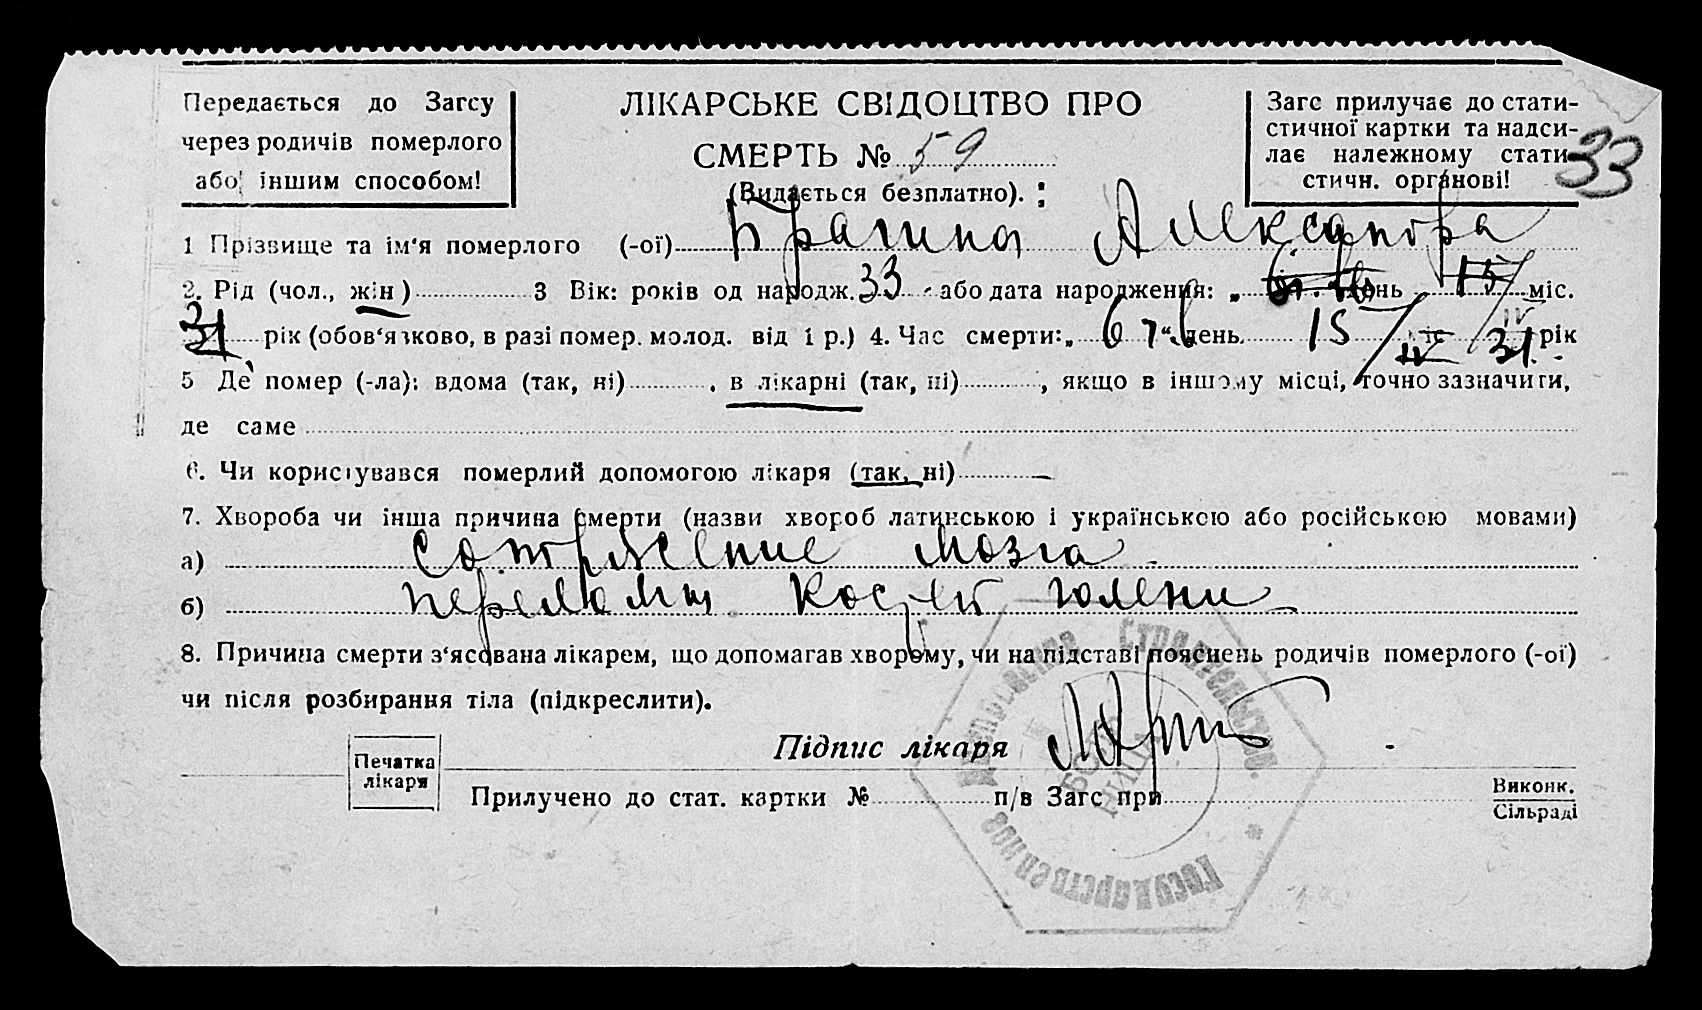 Передається до Загсу
через родичів померлого
або іншим способом!
ЛІКАРСЬКЕ СВІДОЦТВО ПРО
СМЕРТЬ № 59
(Видається безплатно).
Загс прилучає до стати-
стичної картки та надси-
лає належному стати-
стичн. органові!
33
1 Прізвище та ім'я померлого (-ої) Брагина Александра
2. Рід (чол., жін) 3 Вік: років од народж. 33 або дата народження: „ день 15 міс.
31 рік (обов'язково, в разі помер. молод. від 1 р.) 4. Час смерти: „ 6 день 15/IV міс 31 рік
5 Де помер (-ла): вдома (так, ні) , в лікарні (так, ні) , якщо в іншому місці, точно зазначити,
де саме
6. Чи користувався померлий допомогою лікаря (так, ні)
7. Хвороба чи інша причина смерти (назви хвороб латинською і українською або російською мовами)
а) Сотрясение мозга
б) переломы костей голени
8. Причина смерти з'ясована лікарем, що допомагав хворому, чи на підставі пояснень родичів померлого (-ої)
чи після розбирання тіла (підкреслити).
Печатка
лікаря
Підпис лікаря
Прилучено до стат. картки № п/в Загс при
Виконк.
Сільраді